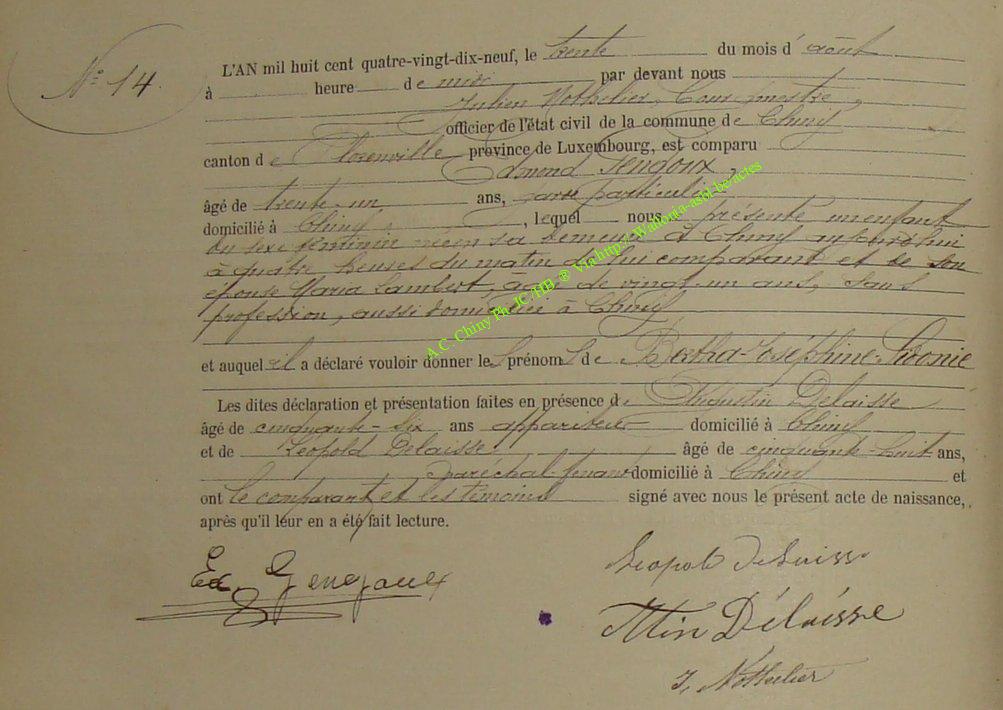 N° 14.
L'AN mil huit cent quatre-vingt-dix-neuf, le trente du mois d' août
à heure de midi par devant nous
Julien Nothelier, Bourgmestre,
officier de l'état civil de la commune de Chiny
canton de Florenville province de Luxembourg, est comparu
Edmond
âgé de trente-un ans, garde particulier
domicilié à Chiny, lequel nous a présenté un enfant
du sexe féminin né en sa demeure à Chiny aujourd'hui
à quatre heures du matin de lui comparant et de son
épouse Maria Lambert, âgée de vingt-un ans, sans
profession, aussi domiciliée à Chiny
et auquel il a déclaré vouloir donner les prénoms de Bertha-Joséphine-Sidonie
Les dites déclaration et présentation faites en présence d' Augustin Delaisse
âgé de cinquante-six ans appariteur domicilié à Chiny
et de Léopold Delaisse, âgé de cinquante-huit ans,
maréchal-ferrant domicilié à Chiny et
ont le comparant et les témoins signé avec nous le présent acte de naissance,
après qu'il leur en a été fait lecture.
A.C. Chiny Ph. JC/HB ® Via http://Wallonia-asbl-be/actes
Ed.
Léopold Delaisse
Délaisse
J. Nothelier